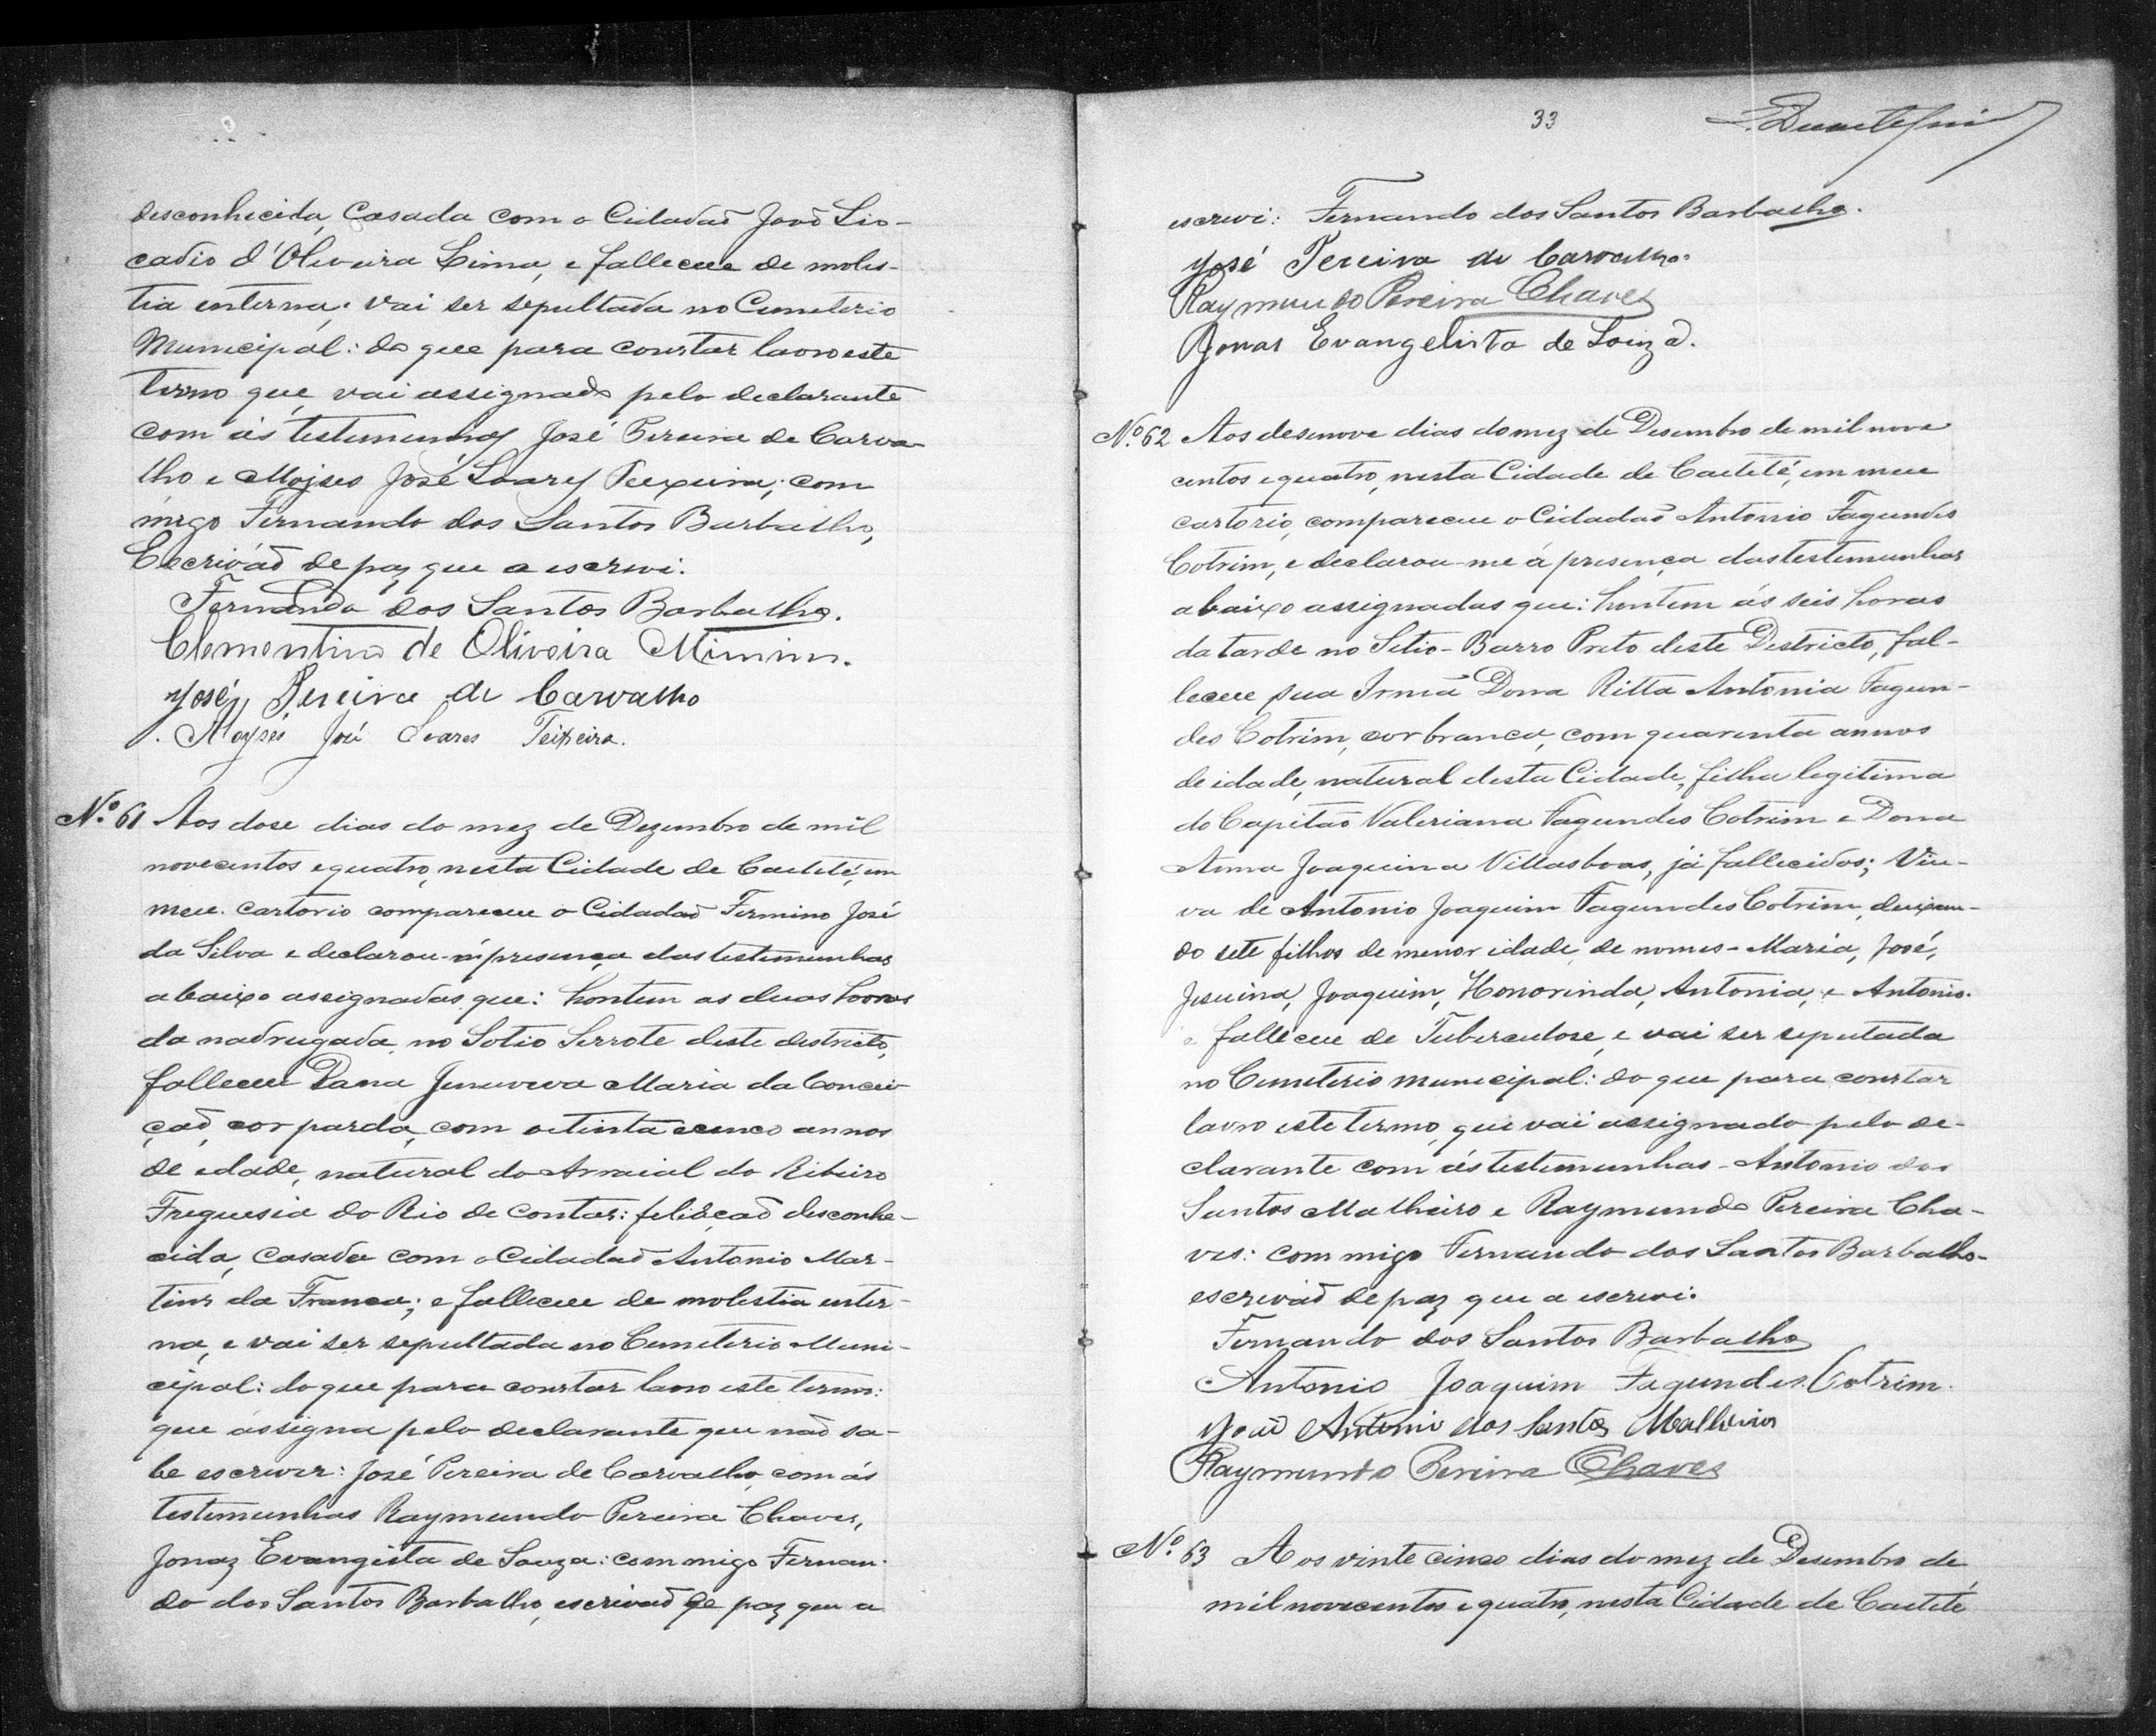 desconhecida, Casada com o Cidadaõ Joaõ Lio-
cadio d'Oliveira Lima, e falleceu de moles-
tia enterna; vai ser sepultada no Cemeterio
Municipal: do que para constar lavro este
termo que vai assignado pelo declarante
com ás testemunhas José Pereira de Carva-
lho e Moyses José Soares Teixeira; com
migo Fernando dos Santos Barbalho,
Escrivaõ de paz que a escrevi.
Fernando dos Santos Barbalho.
Clementino de Oliveira
José Pereira de Carvalho
Moyses José Soares Teixeira.
Nº 61 Aos dose dias do mez de Dezembro de mil
novecentos e quatro, nesta Cidade de Caeteté, em
meu cartorio compareceu o Cidadaõ Firmino José
da Silva e declarou á presença das testemunhas
abaixo assignadas que: hontem as duas horas
da madrugada, no Sitio Serrote deste districto,
falleceu Dona Jenoveva Maria da Concei-
çaõ, cor parda, com oitenta e cinco annos
de edade, natural do Arraial do Ribeiro
Freguesia do Rio de Contas: feliaçaõ desconhe-
cida, Casada com o Cidadaõ Antonio Mar-
tins da Franca; e falleceu de molestia enter-
na, e vai ser sepultada no Cemeterio Muni-
cipal: do que para constar lavro este termo:
que assigna pelo declarante que naõ sa-
be escrever: José Pereira de Carvalho, com ás
testemunhas Raymundo Pereira Chaves,
Jonas Evangista de Souza: com migo Fernan-
do dos Santos Barbalho, escrivaõ de paz que a
33
escrevi: Fernando dos Santos Barbalho.
José Pereira de Carvalho.
Raymundo Pereira Chaves
Jonas Evangelista de Souza.
Nº 62 Aos desenove dias do mez de Desembro de mil nove
centos e quatro, nesta Cidade de Caeteté, em meu
cartorio, compareceu o Cidadaõ Antonio Fagundes
Cotrim, e declarou-me á presença das testemunhas
abaixo assignadas que: hontem ás seis horas
da tarde no Sitio-Barro Preto deste Destricto, fal-
leceu sua Irmã Dona Ritta Antonia Fagun-
des Cotrim, cor branca, com quarenta annos
de idade, natural desta Cidade, filha legitima
do Capitaõ Valeriana Fagundes Cotrim e Dona
Anna Joaquina Villasboas, já fallecidos; Viu-
va de Antonio Joaquim Fagundes Cotrim, deixan-
do sete filhos de menor idade, de nomes-Maria, José,
Jesuina, Joaquim, Honorinda, Antonia, e Antonio.
e falleceu de Tuberculose, e vai ser seputada
no Cemeterio municipal: do que para constar
lavro este termo, que vai assignado pelo de-
clarante com ás testemunhas-Antonio dos
Santos Malheiro e Raymundo Pereira Cha-
ves: com migo Fernando dos Santos Barbalho-
escrivaõ de paz que a escrevi.
Fernando dos Santos Barbalho
Antonio Joaquim Fagundes Cotrim.
Joaõ Antonio dos Santos Malheiros
Raymundo Pereira Chaves
Nº 63 Aos vinte cinco dias do mez de Desembro de
mil novecentos e quatro, nesta Cidade de Caeteté